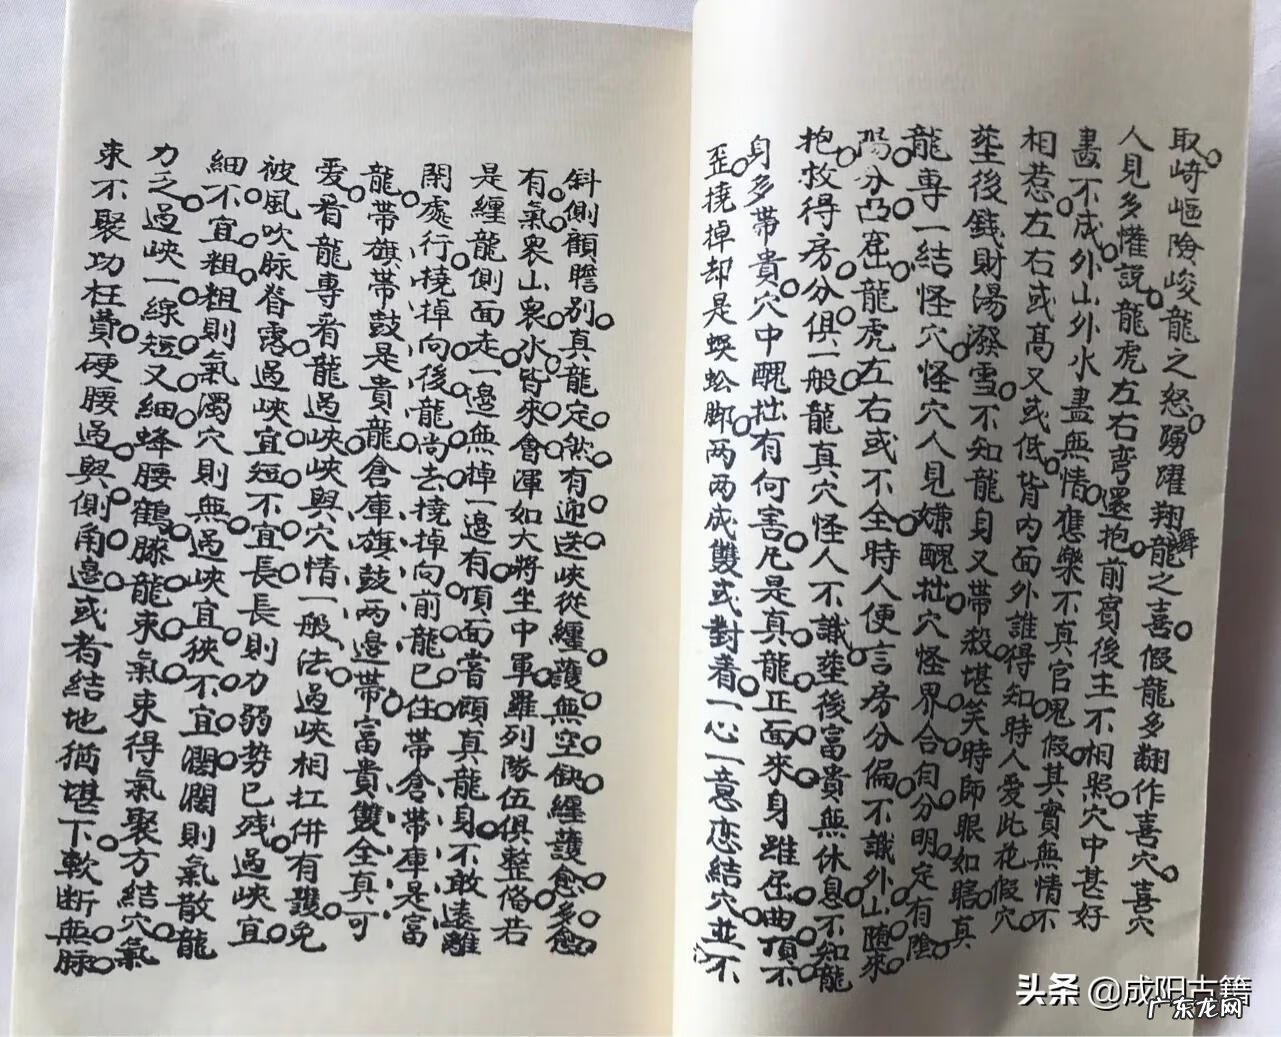 取崎嶇險峻龍之怒踴躍翔舞龍之喜假龍多翻作喜穴喜穴
人見多懽說龍虎左右彎還抱前賓後主不相照穴中甚好
畵不成外山外水盡無情應樂不真官鬼假其實無情不
相惹左右或高又或低背内面外誰得知時人爱此花假穴
塟後錢財湯潑雪不知龍身又帶殺堪笑時師眼如瞎真
龍專一結怪穴怪穴人見嫌醜拙穴怪界合自分明定有陰
陽分凸窟龍虎左右或不全時人便言房分偏不識外山隨來
抱救得房分俱一般龍真穴怪人不識塟後富貴無休息不知龍
身多帶貴穴中醜拙有何害凡是真龍正面來身雖屈曲頂不
歪撓掉却是蜈蚣脚两两成雙或對着一心一意恋結穴並不
斜側顧瞻别真龍定然有迎送峽從纏護無空缺纏護愈多愈
有氣衆山衆水皆來會渾如大將坐中軍羅列隊伍俱整俻若
是纏龍側面走一邉無掉一邉有頂面當頋真龍身不敢遠離
閑處行撓掉向後龍尚去撓掉向前龍已住帶倉帶庫是富
龍帶旗帶鼓是貴龍倉庫旗鼓两邉帶富貴雙全真可
爱看龍專看龍過峽峽與穴情一般法過峽相扛併有護免
被風吹脉脊露過峽宜短不宜長長則力弱势已残過峽宜
細不宜粗粗則氣濁穴則無過峽宜狹不宜濶濶則氣散龍
力乏過峽一線短又細蜂腰鶴膝龍束氣束得氣聚方結穴氣
束不聚功枉費硬腰過與側角邉或者結地猶堪下軟断無脉
头条 @成阳古籍
广东龙网